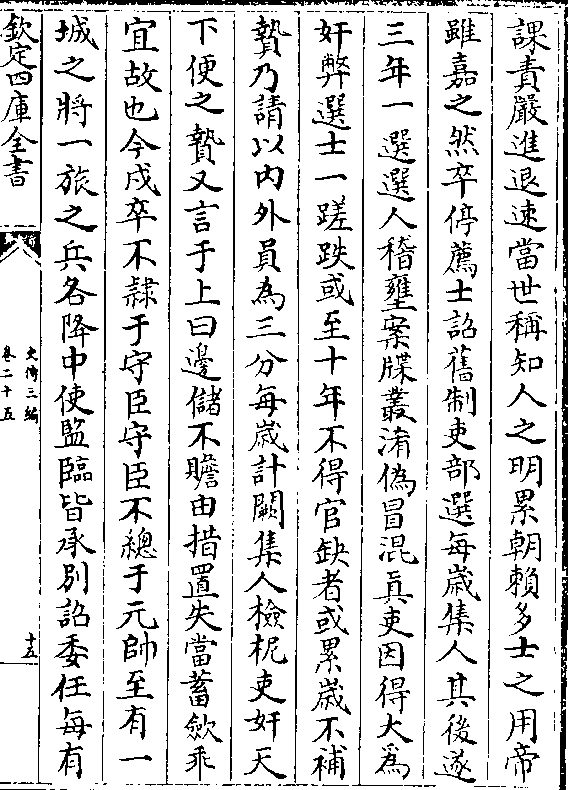 課責嚴進退速當世稱知人之明累朝賴多士之用帝
雖嘉之然卒停薦士詔舊制吏部選每歲集人其後遂
三年一選選人稽壅案牒叢淆偽冒混真吏因得大為
奸弊選士一蹉跌或至十年不得官缺者或累歲不補
贄乃請以內外員為三分每歲計闕集人檢柅吏奸天
下便之贄又言于上曰邊儲不贍由措置失當蓄斂乖
宜故也今戍卒不隷于守臣守臣不總于元帥至有一
城之將一旅之兵各降中使監臨皆承別詔委任每有
欽定四庫全書
史傳三編
卷二十五
十五